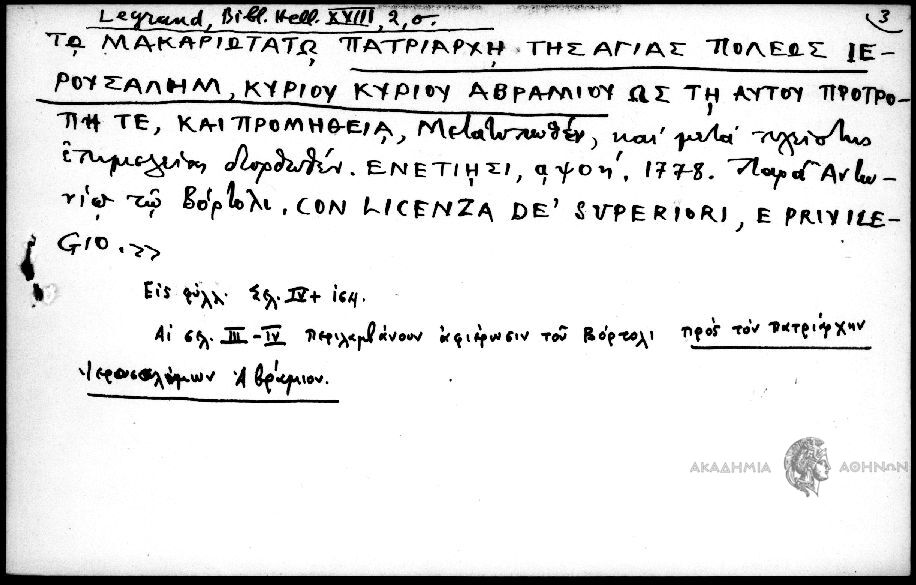 Legrand, Bibl. Hell. XVIII, 2, σ.
3
Τῼ ΜΑΚΑΡΙΩΤΑΤῼ ΠΑΤΡΙΑΡΧῌ ΤΗΣ ΑΓΙΑΣ ΠΟΛΕΩΣ ΙΕ-
ΡΟΥΣΑΛΗΜ, ΚΥΡΙΟΥ ΚΥΡΙΟΥ ΑΒΡΑΜΙΟΥ ΩΣ Τῌ ΑΥΤΟΥ ΠΡΟΤΡΟ-
Πῌ ΤΕ, ΚΑΙ ΠΡΟΜΗΘΕΙᾼ, Μετατυπωθέν, καὶ μετὰ πλείστης
ἐπιμελείας διορθωθέν. ΕΝΕΤΙΗΣΙ, αψοή, 1778. Παρὰ Αντω-
νίῳ τῷ Βόρτολι. CON LICENZA DE' SUPERIORI, E PRIVILE-
GIO.>>
Εἰς φύλλ. Σελ. IV +
Αἱ σελ. III-IV περιλαμβάνουν ἀφιέρωσιν τοῦ Βόρτολι πρὸς τὸν πατριάρχην
Ἱεροσολύμων Ἀβράμιον.
ΑΚΑΔΗΜΙΑ ΑΘΗΝΩΝ